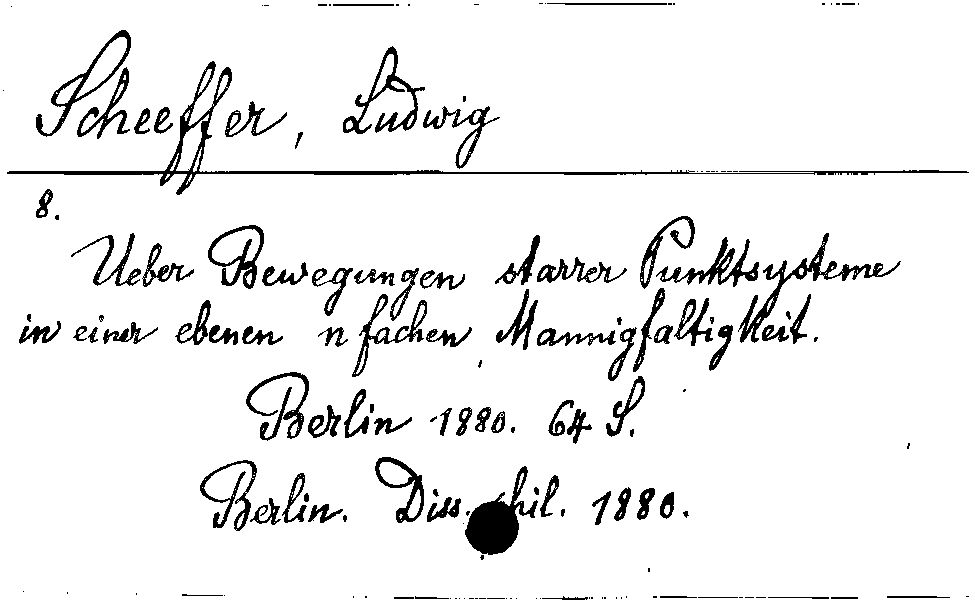 Scheeffer, Ludwig
8.
Ueber Bewegungen starrer Punktsysteme
in einer ebenen n fachen Mannigfaltigkeit.
Berlin 1880. 64 S.
Berlin. Diss. phil. 1880.